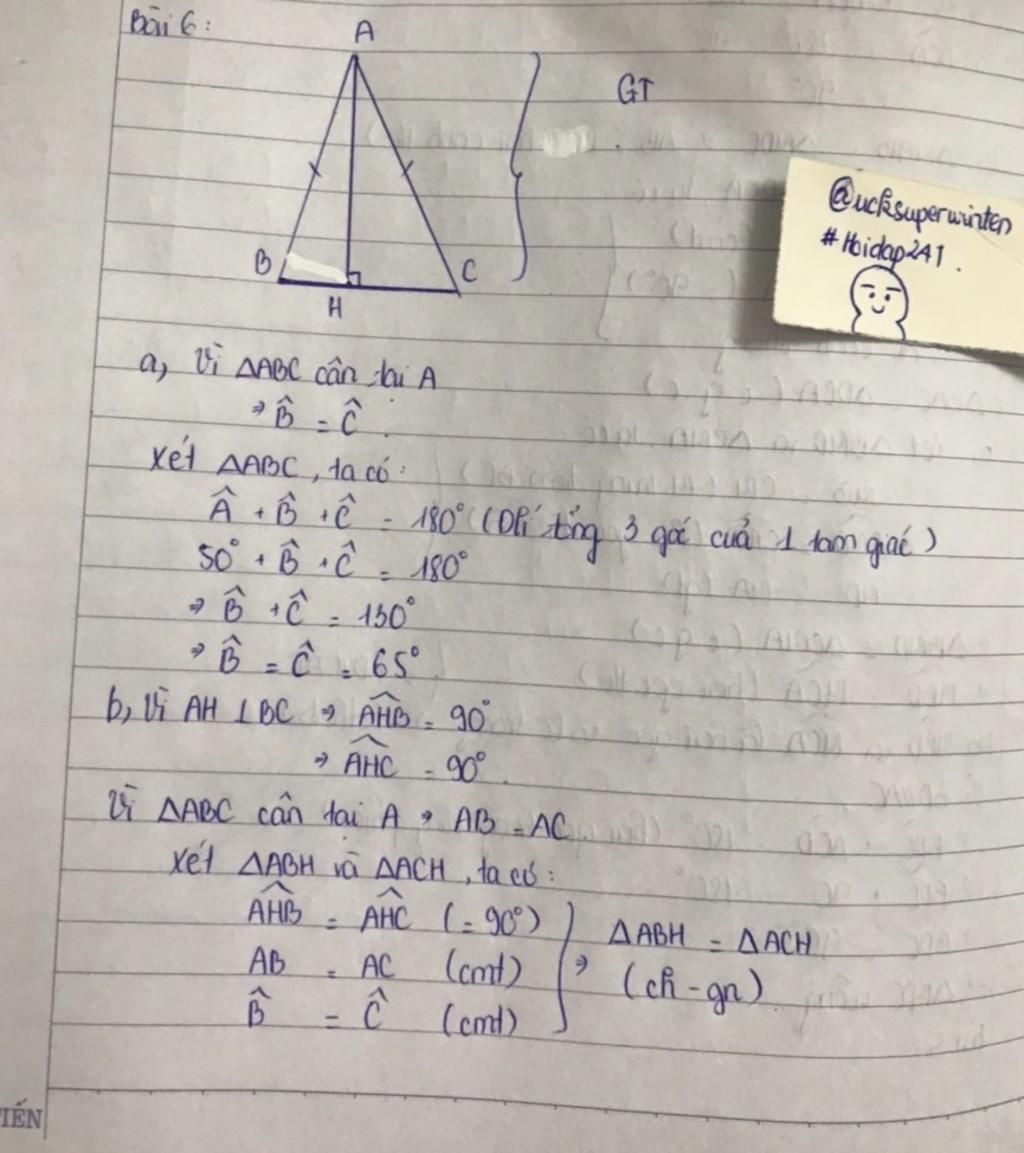 Bài 6:
A
GT
B
C
H
@ucksuperwinten
#Hoidap247.
a, Vì ΔABC cân tại A
⇒ B̂ = Ĉ.
Xét ΔABC, ta có:
Â + B̂ + Ĉ = 180° (Đlí tổng 3 góc của 1 tam giác)
50° + B̂ + Ĉ = 180°
⇒ B̂ + Ĉ = 130°
⇒ B̂ = Ĉ = 65°
b, Vì AH ⊥ BC ⇒ AHB̂ = 90°
⇒ AHĈ = 90°.
Vì ΔABC cân tại A ⇒ AB = AC
Xét ΔABH và ΔACH, ta có:
AHB̂ = AHĈ (= 90°)
AB = AC (cmt)
B̂ = Ĉ (cmt)
⇒ ΔABH = ΔACH
(ch - gn)
IẾN